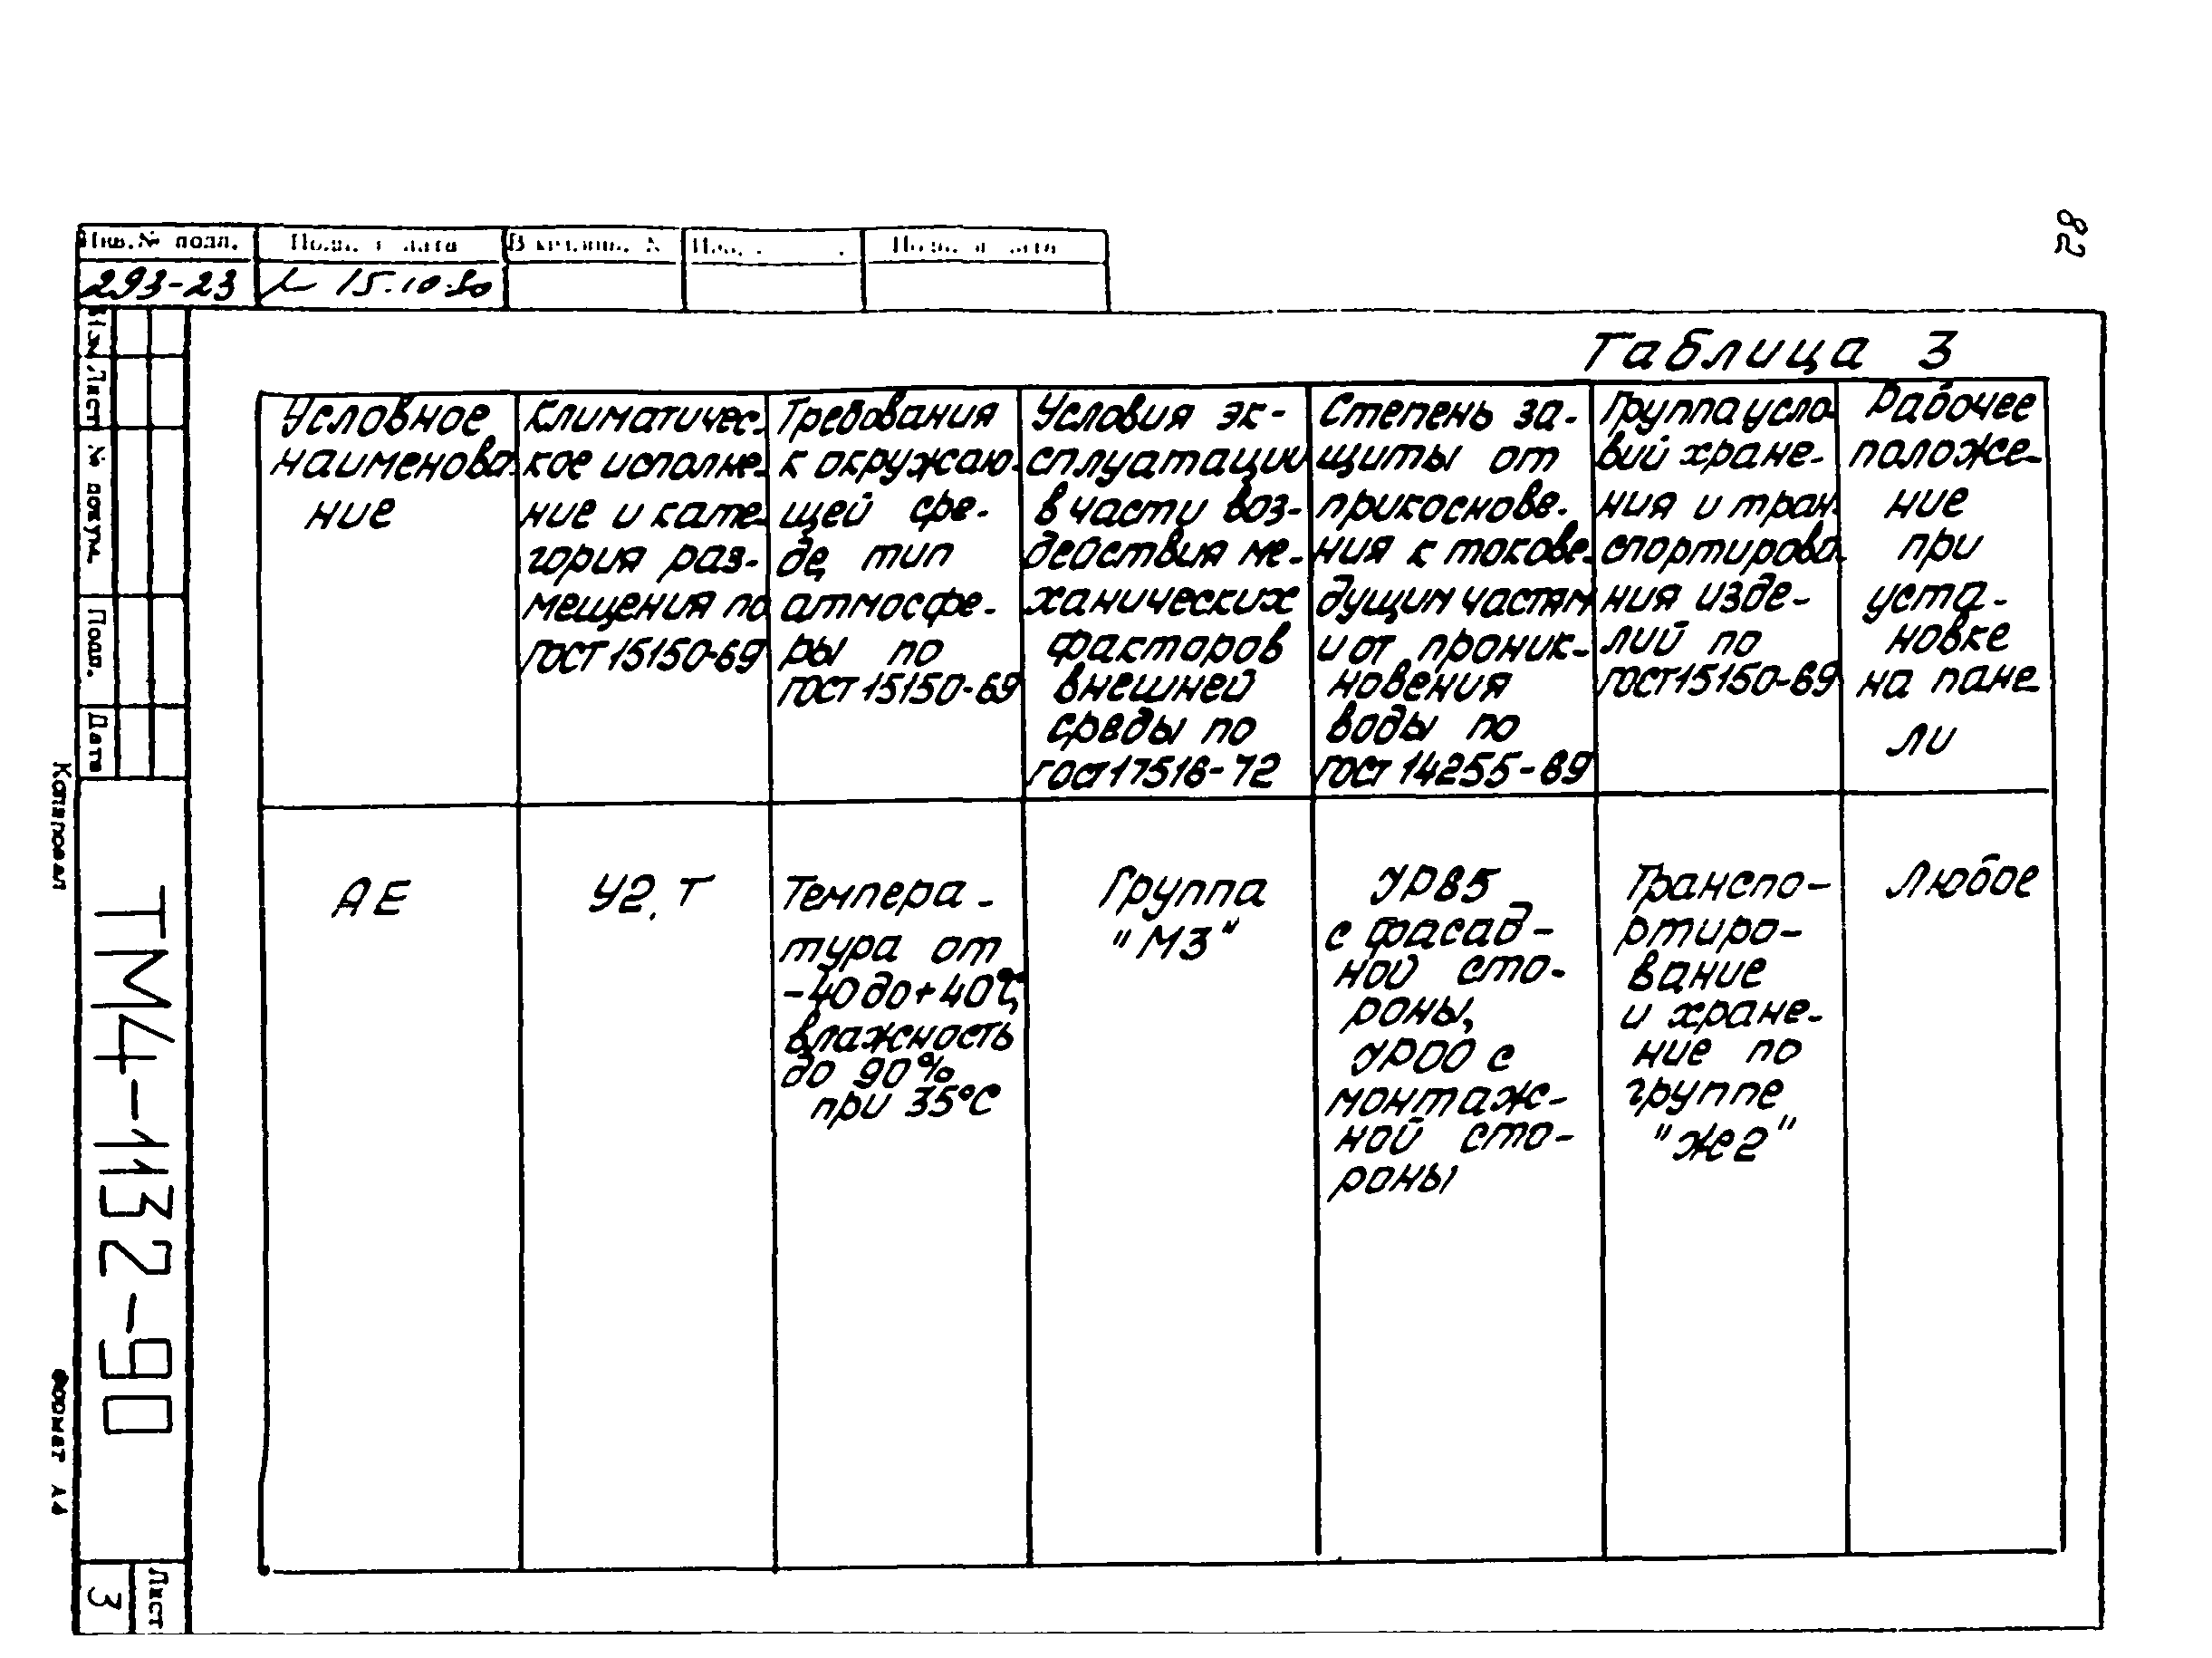 82
Инв.№ подл.
293-23
15.10.90
Таблица 3
Условное
наименова-
ние
Климатичес-
кое исполне-
ние и кате-
гория раз-
мещения по
ГОСТ 15150-69
Требования
к окружаю-
щей сре-
де, тип
атмосфе-
ры по
ГОСТ 15150-69
Условия эк-
сплуатации
в части воз-
действия ме-
ханических
факторов
внешней
среды по
ГОСТ 17516-72
Степень за-
щиты от
прикоснове-
ния к токове-
дущим частям
и от проник-
новения
воды по
ГОСТ 14255-69
Группа усло-
вий хране-
ния и тран-
спортирова-
ния изде-
лий по
ГОСТ 15150-69
Рабочее
положе-
ние
при
уста-
новке
на пане-
ли
АЕ
У2, Т
Темпера-
тура от
-40 до +40°С,
влажность
до 90%
при 35°С
Группа
"М3"
УР85
с фасад-
ной сто-
роны,
УР00 с
монтаж-
ной сто-
роны
Транспо-
ртиро-
вание
и хране-
ние по
группе
"Ж2"
Любое
Изм Лист № докум. Подп. Дата
ТМ4-1132-90
Лист
3
Копировал
Формат А4